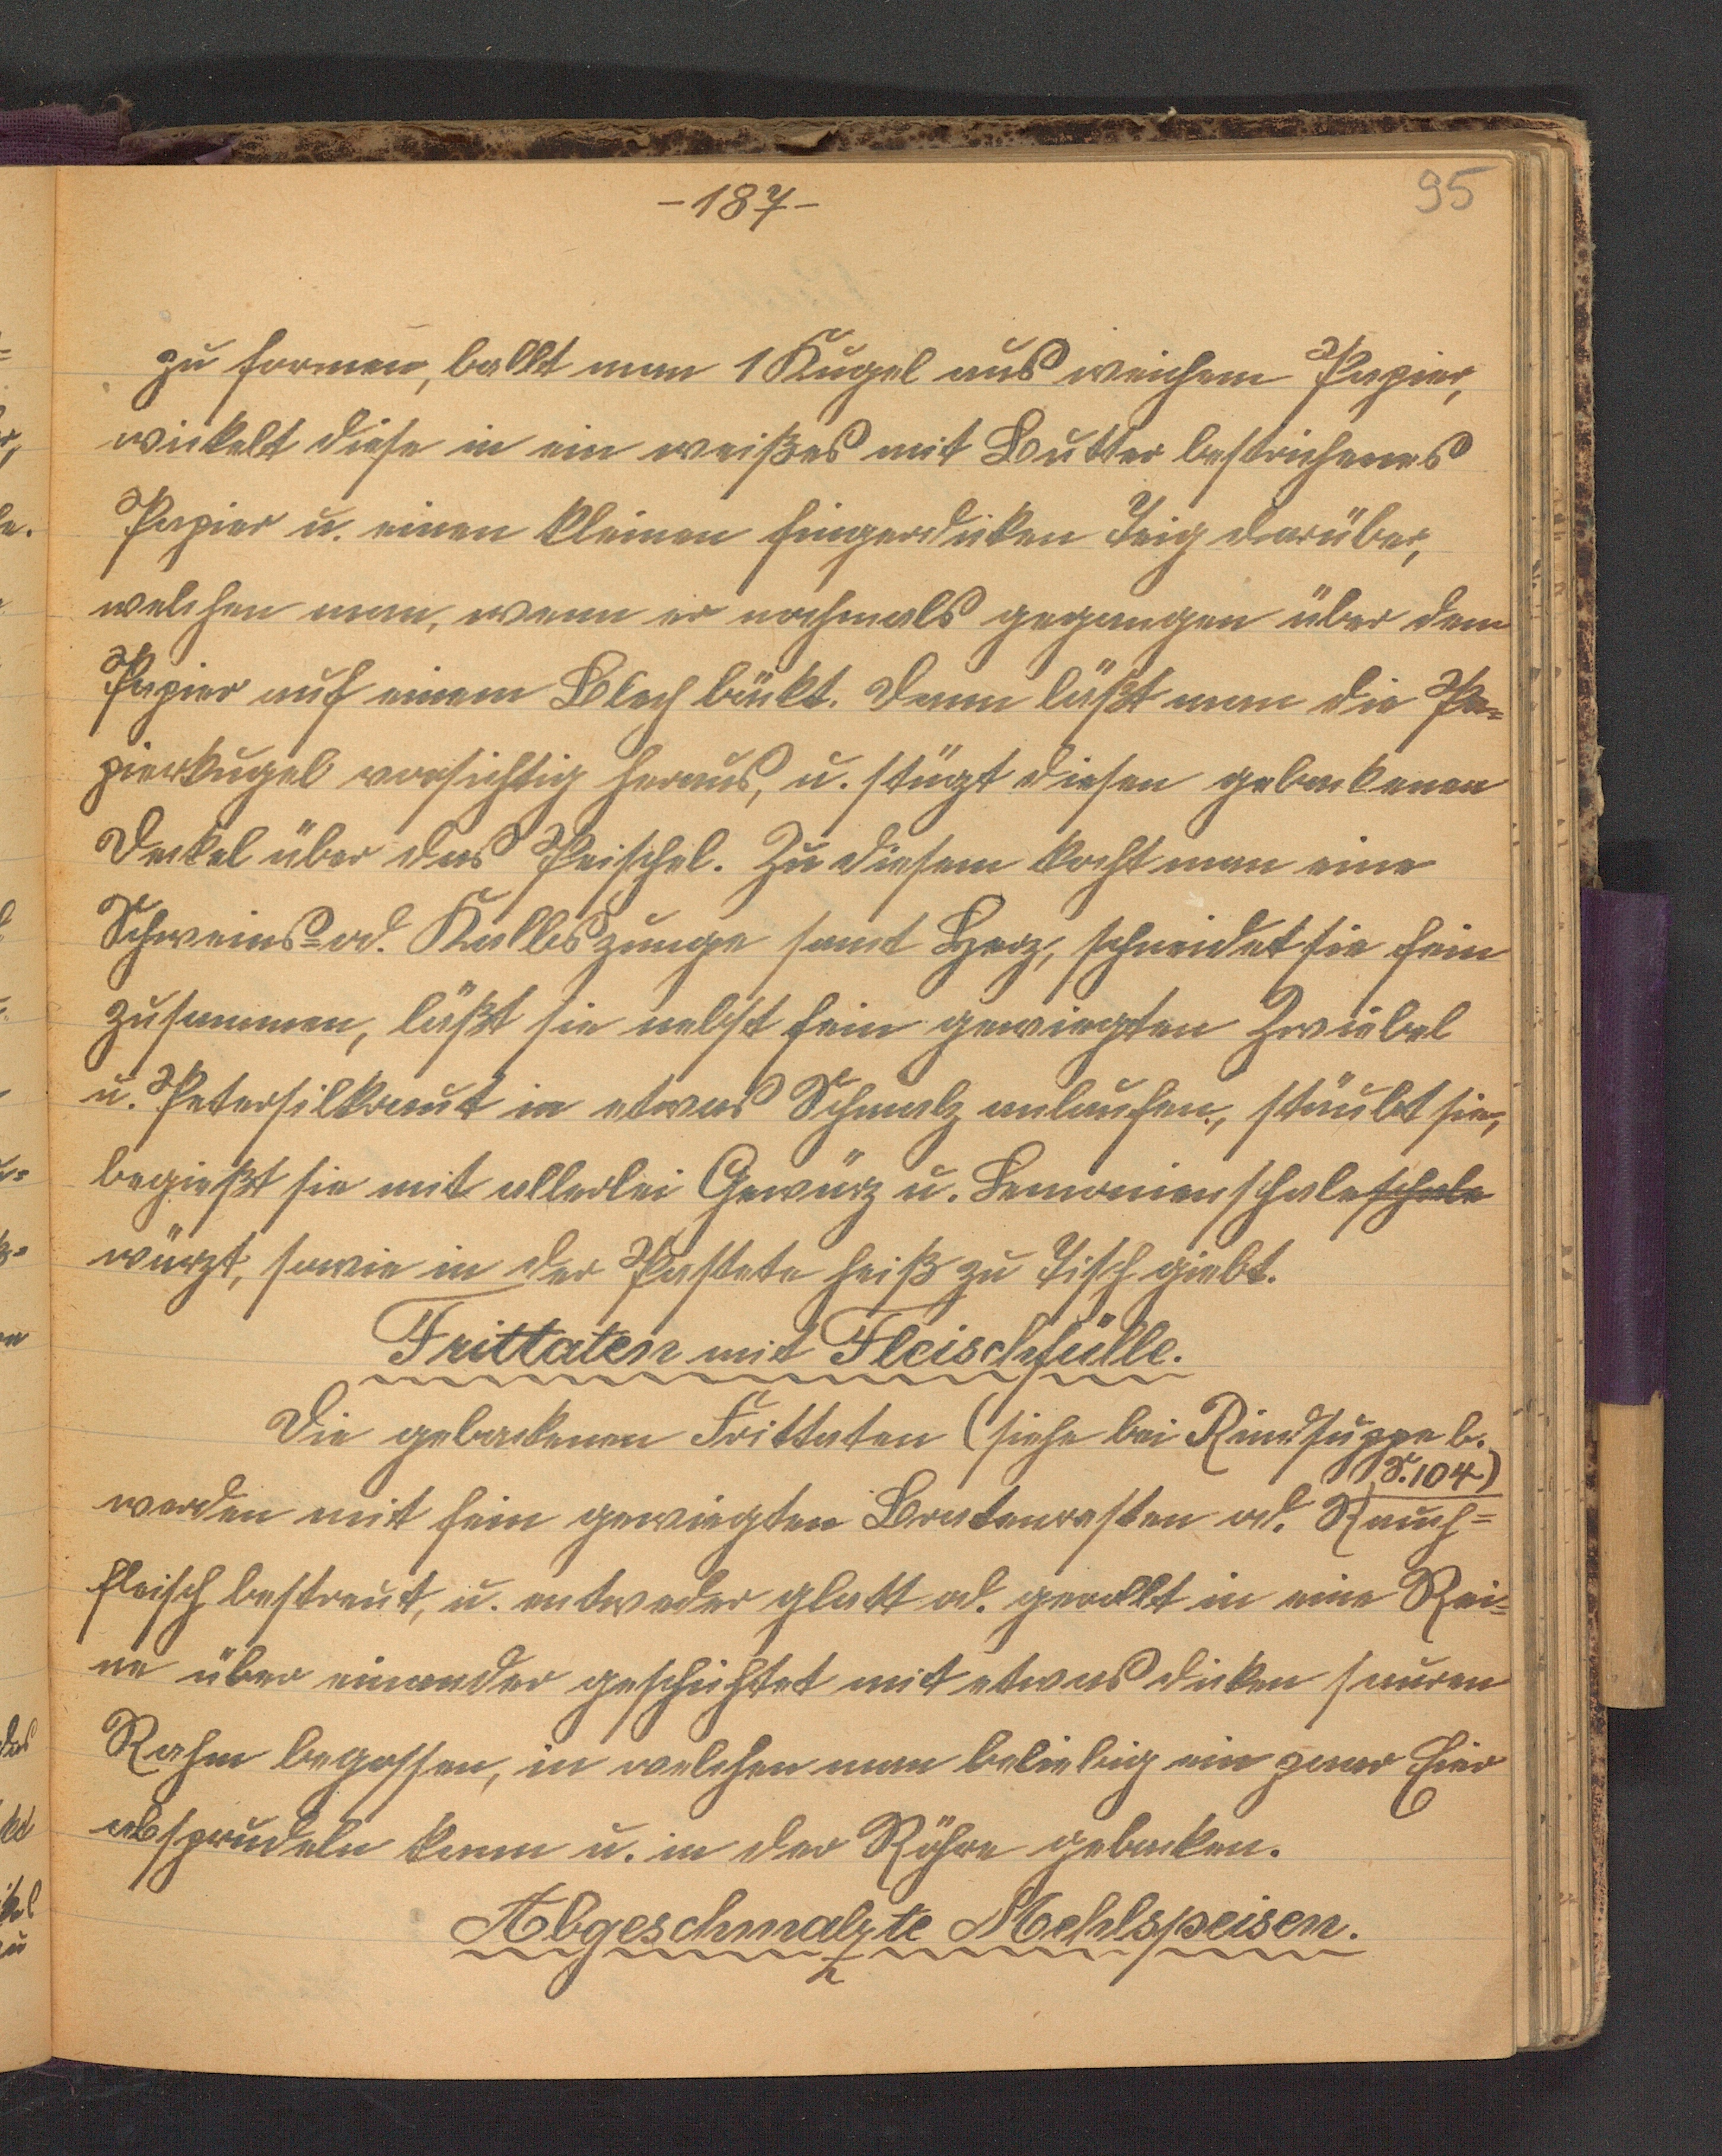 -187-
95
zu formen, ballt man 1 Kugel aus weichem Papier,
wickelt diese in ein weißes mit Butter bestrichenes
Papier u. einen kleinen fingerdicken Teig darüber,
welchen man, wenn er nochmals gegangen über dem
Papier auf einem Blech bäckt. Dann läßt man die Pa=
pierkugel vorsichtig heraus, u. stügt diesen gebackenen
Deckel über das Peischel. Zu diesem kocht man eine
Schweins= od. Kalbszunge samt Herz, schneidet sie fein
zusammen, läßt sie nebst fein gewiegten Zwiebel
u. Petersilkraut in etwas Schmalz anlaufen, stäubt sie,
begießt sie mit allerlei Gewürz u. Lemonienschale schale
würzt, sowie in der Pastete heiß zu Tisch giebt.
Frittaten mit Fleischfülle.
Die gebackenen Frittaten (siehe bei Rindsuppe b.
S. 104)
werden mit fein gewiegten Bratenresten od. Rauch=
fleisch bestreut, u. entweder glatt od. gerollt in eine Rei=
ne über einander geschichtet mit etwas dicken sauren
Rahm begossen, in welchen man beliebig ein paar Eier
absprudeln kann u. in der Röhre gebacken.
Abgeschmalzte Mehlspeisen.